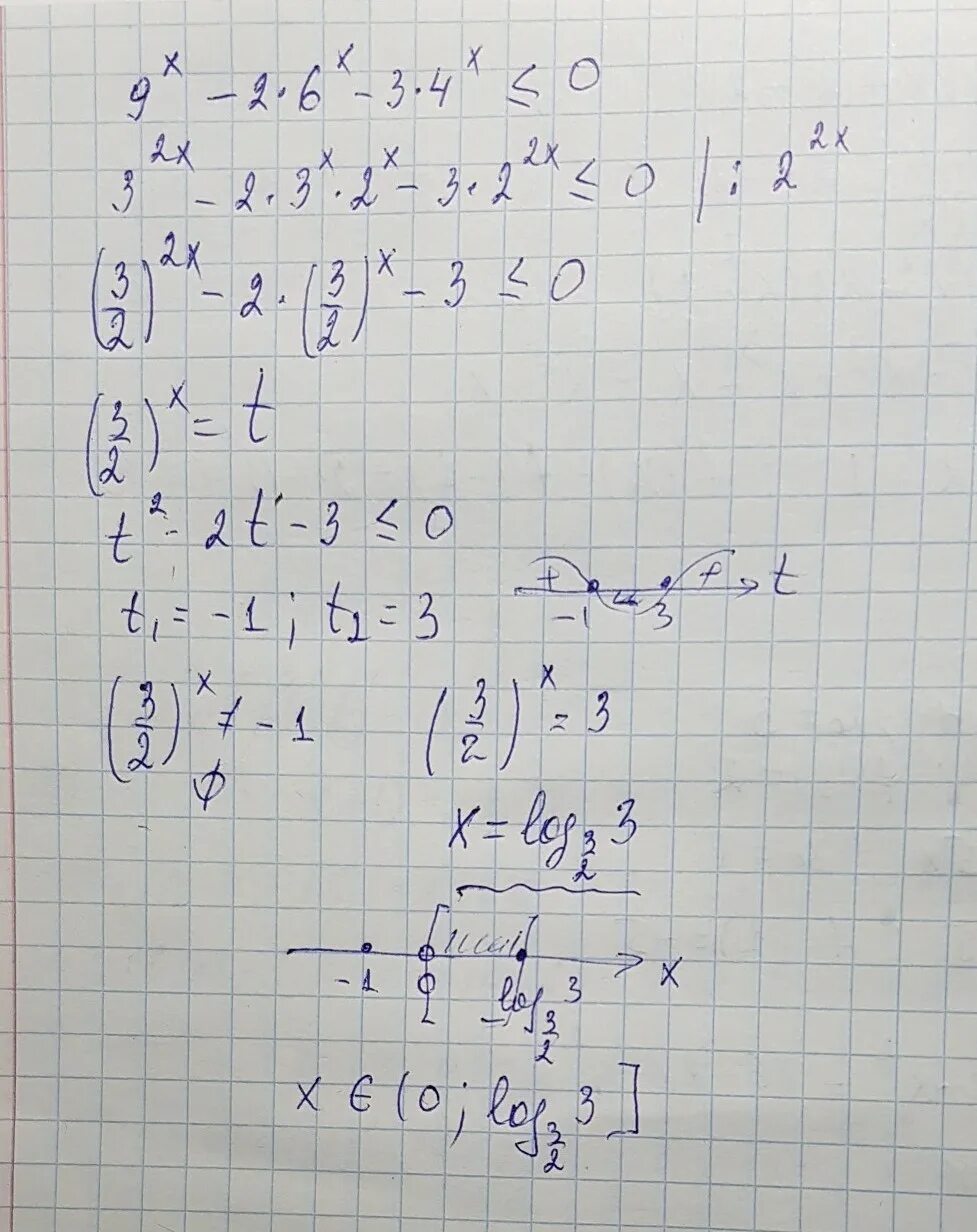 9^x - 2·6^x - 3·4^x ≤ 0
3^{2x} - 2·3^x·2^x - 3·2^{2x} ≤ 0 | : 2^{2x}
(3/2)^{2x} - 2·(3/2)^x - 3 ≤ 0
(3/2)^x = t
t^2 - 2t - 3 ≤ 0
+ - + t
-1 3
t_1 = -1; t_2 = 3
(3/2)^x ≠ -1 (3/2)^x = 3
∅
x = log_{3/2} 3
-1 0 log_{3/2} 3 x
x ∈ (0; log_{3/2} 3]